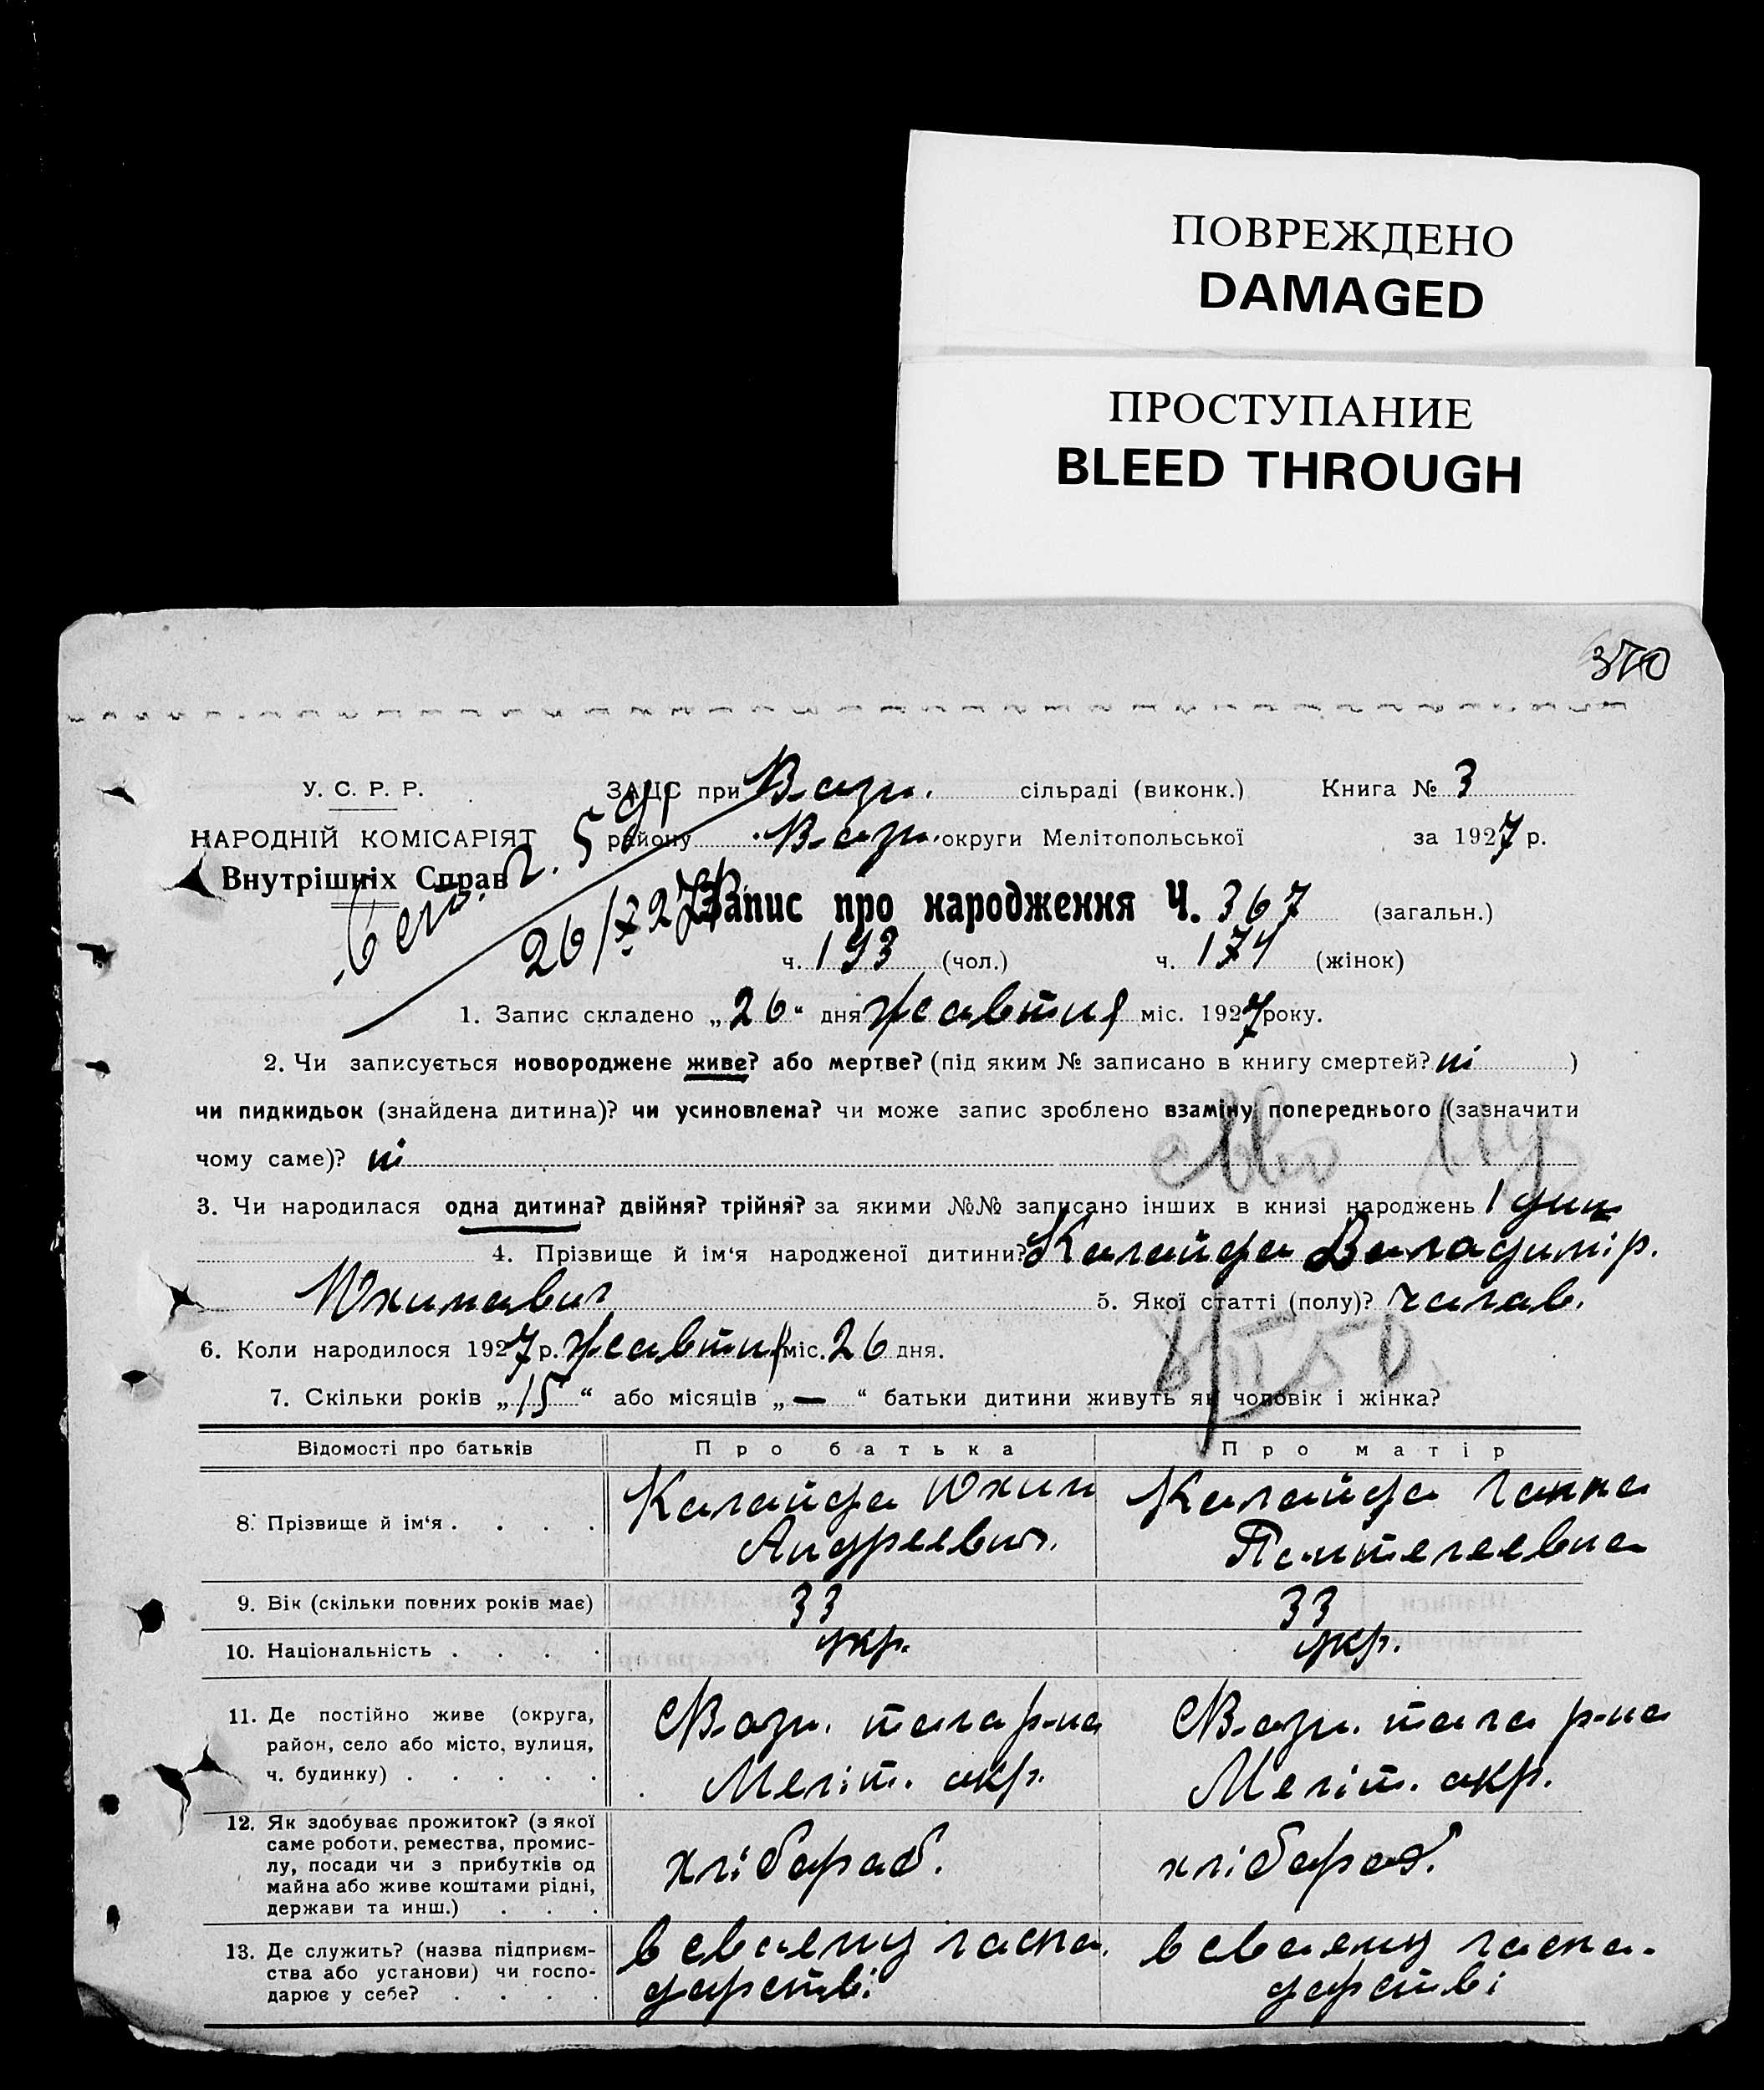 ПОВРЕЖДЕНО
DAMAGED
ПРОСТУПАНИЕ
BLEED THROUGH
370
У. С. Р. Р.
НАРОДНІЙ КОМІСАРІЯТ
Внутрішніх Справ
ЗАЦС при Возн. сільраді (виконк.) Книга № 3
району Возн. округи Мелітопольської за 1927 р.
Запис про народження Ч. 367 (загальн.)
ч. 193 (чол.) ч. 174 (жінок)
1. Запис складено „26“ дня жовтня міс. 1927 року.
2. Чи записується новороджене живе? або мертве? (під яким № записано в книгу смертей? ні )
чи пидкидьок (знайдена дитина)? чи усиновлена? чи може запис зроблено взаміну попереднього (зазначити
чому саме)? ні
3. Чи народилася одна дитина? двійня? трійня? за якими №№ записано інших в книзі народжень 1 дит
4. Прізвище й ім‘я народженої дитини? Калайда Володимір.
Юхимович 5. Якої статті (полу)? чолов.
6. Коли народилося 1927 р. жовтня міс. 26 дня.
7. Скільки років „15“ або місяців „—“ батьки дитини живуть як чоловік і жінка?
Відомості про батьків Про батька Про матір
8. Прізвище й ім‘я . . . . Калайда Юхим Калайда Ганна
Андреевич. Пантелеевна
9. Вік (скільки повних років має) 33 33
10. Національність . . . . укр. укр.
11. Де постійно живе (округа,
район, село або місто, вулиця,
ч. будинку) . . . . .
Возн. тога р-на Возн. тога р-на
Меліт. окр. Меліт. окр.
12. Як здобуває прожиток? (з якої
саме роботи, ремества, промис-
лу, посади чи з прибутків од
майна або живе коштами рідні,
держави та инш.) . . .
хлібороб. хлібороб.
13. Де служить? (назва підприєм-
ства або установи) чи госпо-
дарює у себе? . . . .
в своему госпо- в своему госпо-
дарстві дарстві